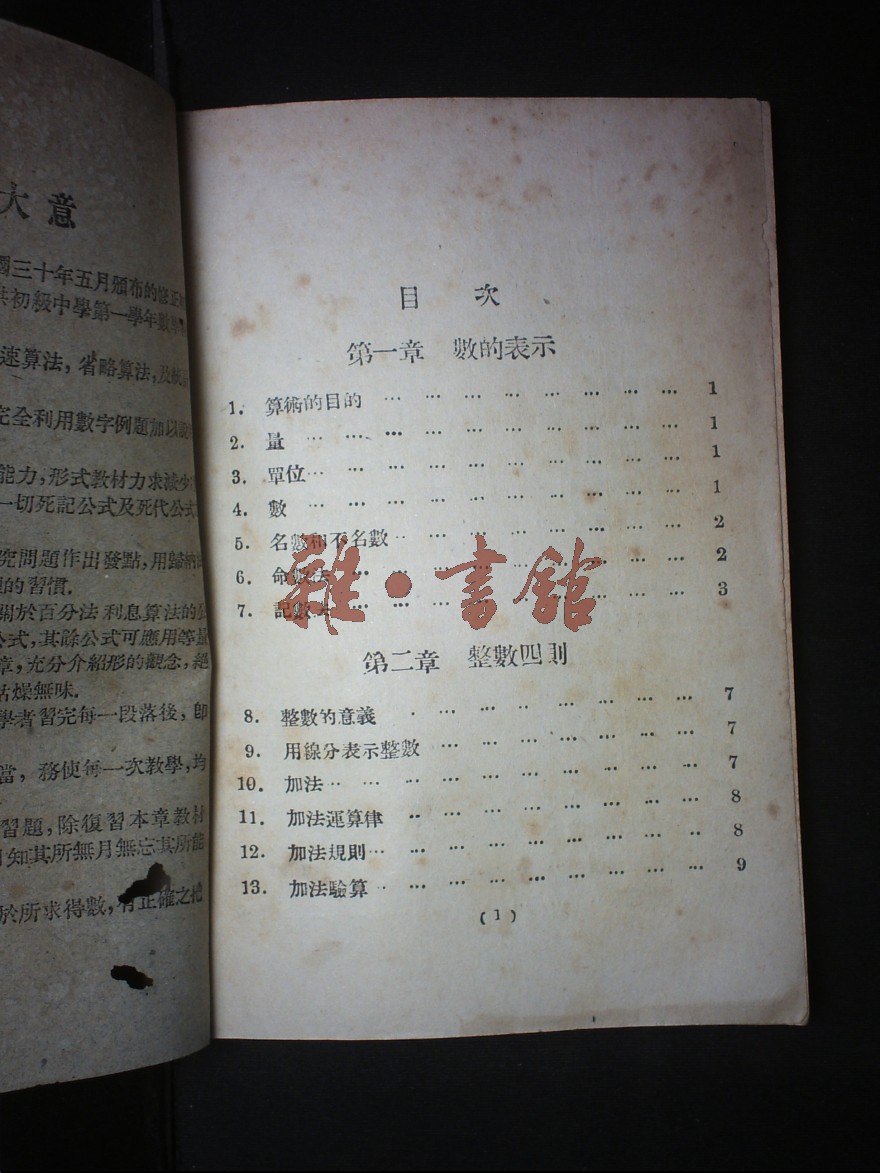 大意
國三十年五月頒布的修正
供初級中學第一學年數學
速算法, 省略算法, 及
完全利用數字例題加以說
能力, 形式教材力求減少
一切死記公式及死代公式
究問題作出發點, 用歸納
的習慣.
關於百分法利息算法的公
公式, 其餘公式可應用等量
章, 充分介紹形的觀念, 
枯燥無味.
學者習完每一段落後, 即
當, 務使每一次教學, 均
習題, 除復習本章教材
日知其所無月無忘其所能
於所求得數, 有正確之把
目 次
第一章 數的表示
1. 算術的目的 … … … … … … … … … 1
2. 量 … … … … … … … … … … … 1
3. 單位 … … … … … … … … … … … 1
4. 數 … … … … … … … … … … … 1
5. 名數和不名數 … … … … … … … … … 2
6. 命數法 … … … … … … … … … … 2
7. 記數法 … … … … … … … … … … 3
雅·書館
第二章 整數四則
8. 整數的意義 … … … … … … … … … 7
9. 用線分表示整數 … … … … … … … … 7
10. 加法 … … … … … … … … … … … 7
11. 加法運算律 … … … … … … … … … 8
12. 加法規則 … … … … … … … … … … 8
13. 加法驗算 … … … … … … … … … … 9
(1)